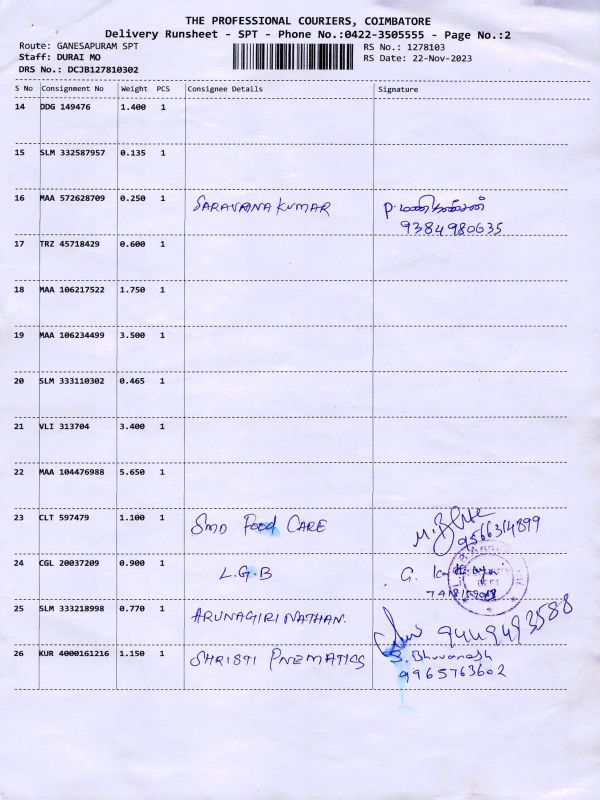 THE PROFESSIONAL COURIERS, COIMBATORE
Delivery Runsheet - SPT - Phone No.:0422-3505555 - Page No.:2
Route: GANESAPURAM SPT
RS No.: 1278103
Staff: DURAI MO
RS Date: 22-Nov-2023
DRS No.: DCJB127810302
S No Consignment No Weight PCS Consignee Details Signature
14 DDG 149476 1.400 1
15 SLM 332587957 0.135 1
16 MAA 572628709 0.250 1 SARAVANA KUMAR P.
9384980635
17 TRZ 45718429 0.600 1
18 MAA 106217522 1.750 1
19 MAA 106234499 3.500 1
20 SLM 333110302 0.465 1
21 VLI 313704 3.400 1
22 MAA 104476988 5.650 1
23 CLT 597479 1.100 1 SMD Food CARE
9566314899
24 CGL 20037209 0.900 1 L.G.B G.
25 SLM 333218998 0.770 1 ARUNAGIRI NATHAN.
9449493588
26 KUR 4000161216 1.150 1 SHRISTI PNEMATICS S. Bhuvanesh
9965763602